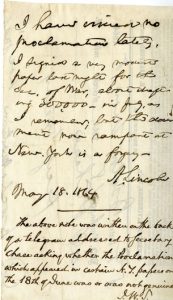 I have issued no
proclamation lately,
I signed a very modest
paper last night for the
Sec. of War, about draft-
ing 300000 in July, as
I remember, but the docu
ment now rampant at
New-York is a forgery
A. Lincoln
May 18. 1864
The above note was written on the back
of a telegram addressed to Secretary
Chase asking whether the Proclamation
which appeared in certain N.Y. papers on
the 18th of June was or was not genuine